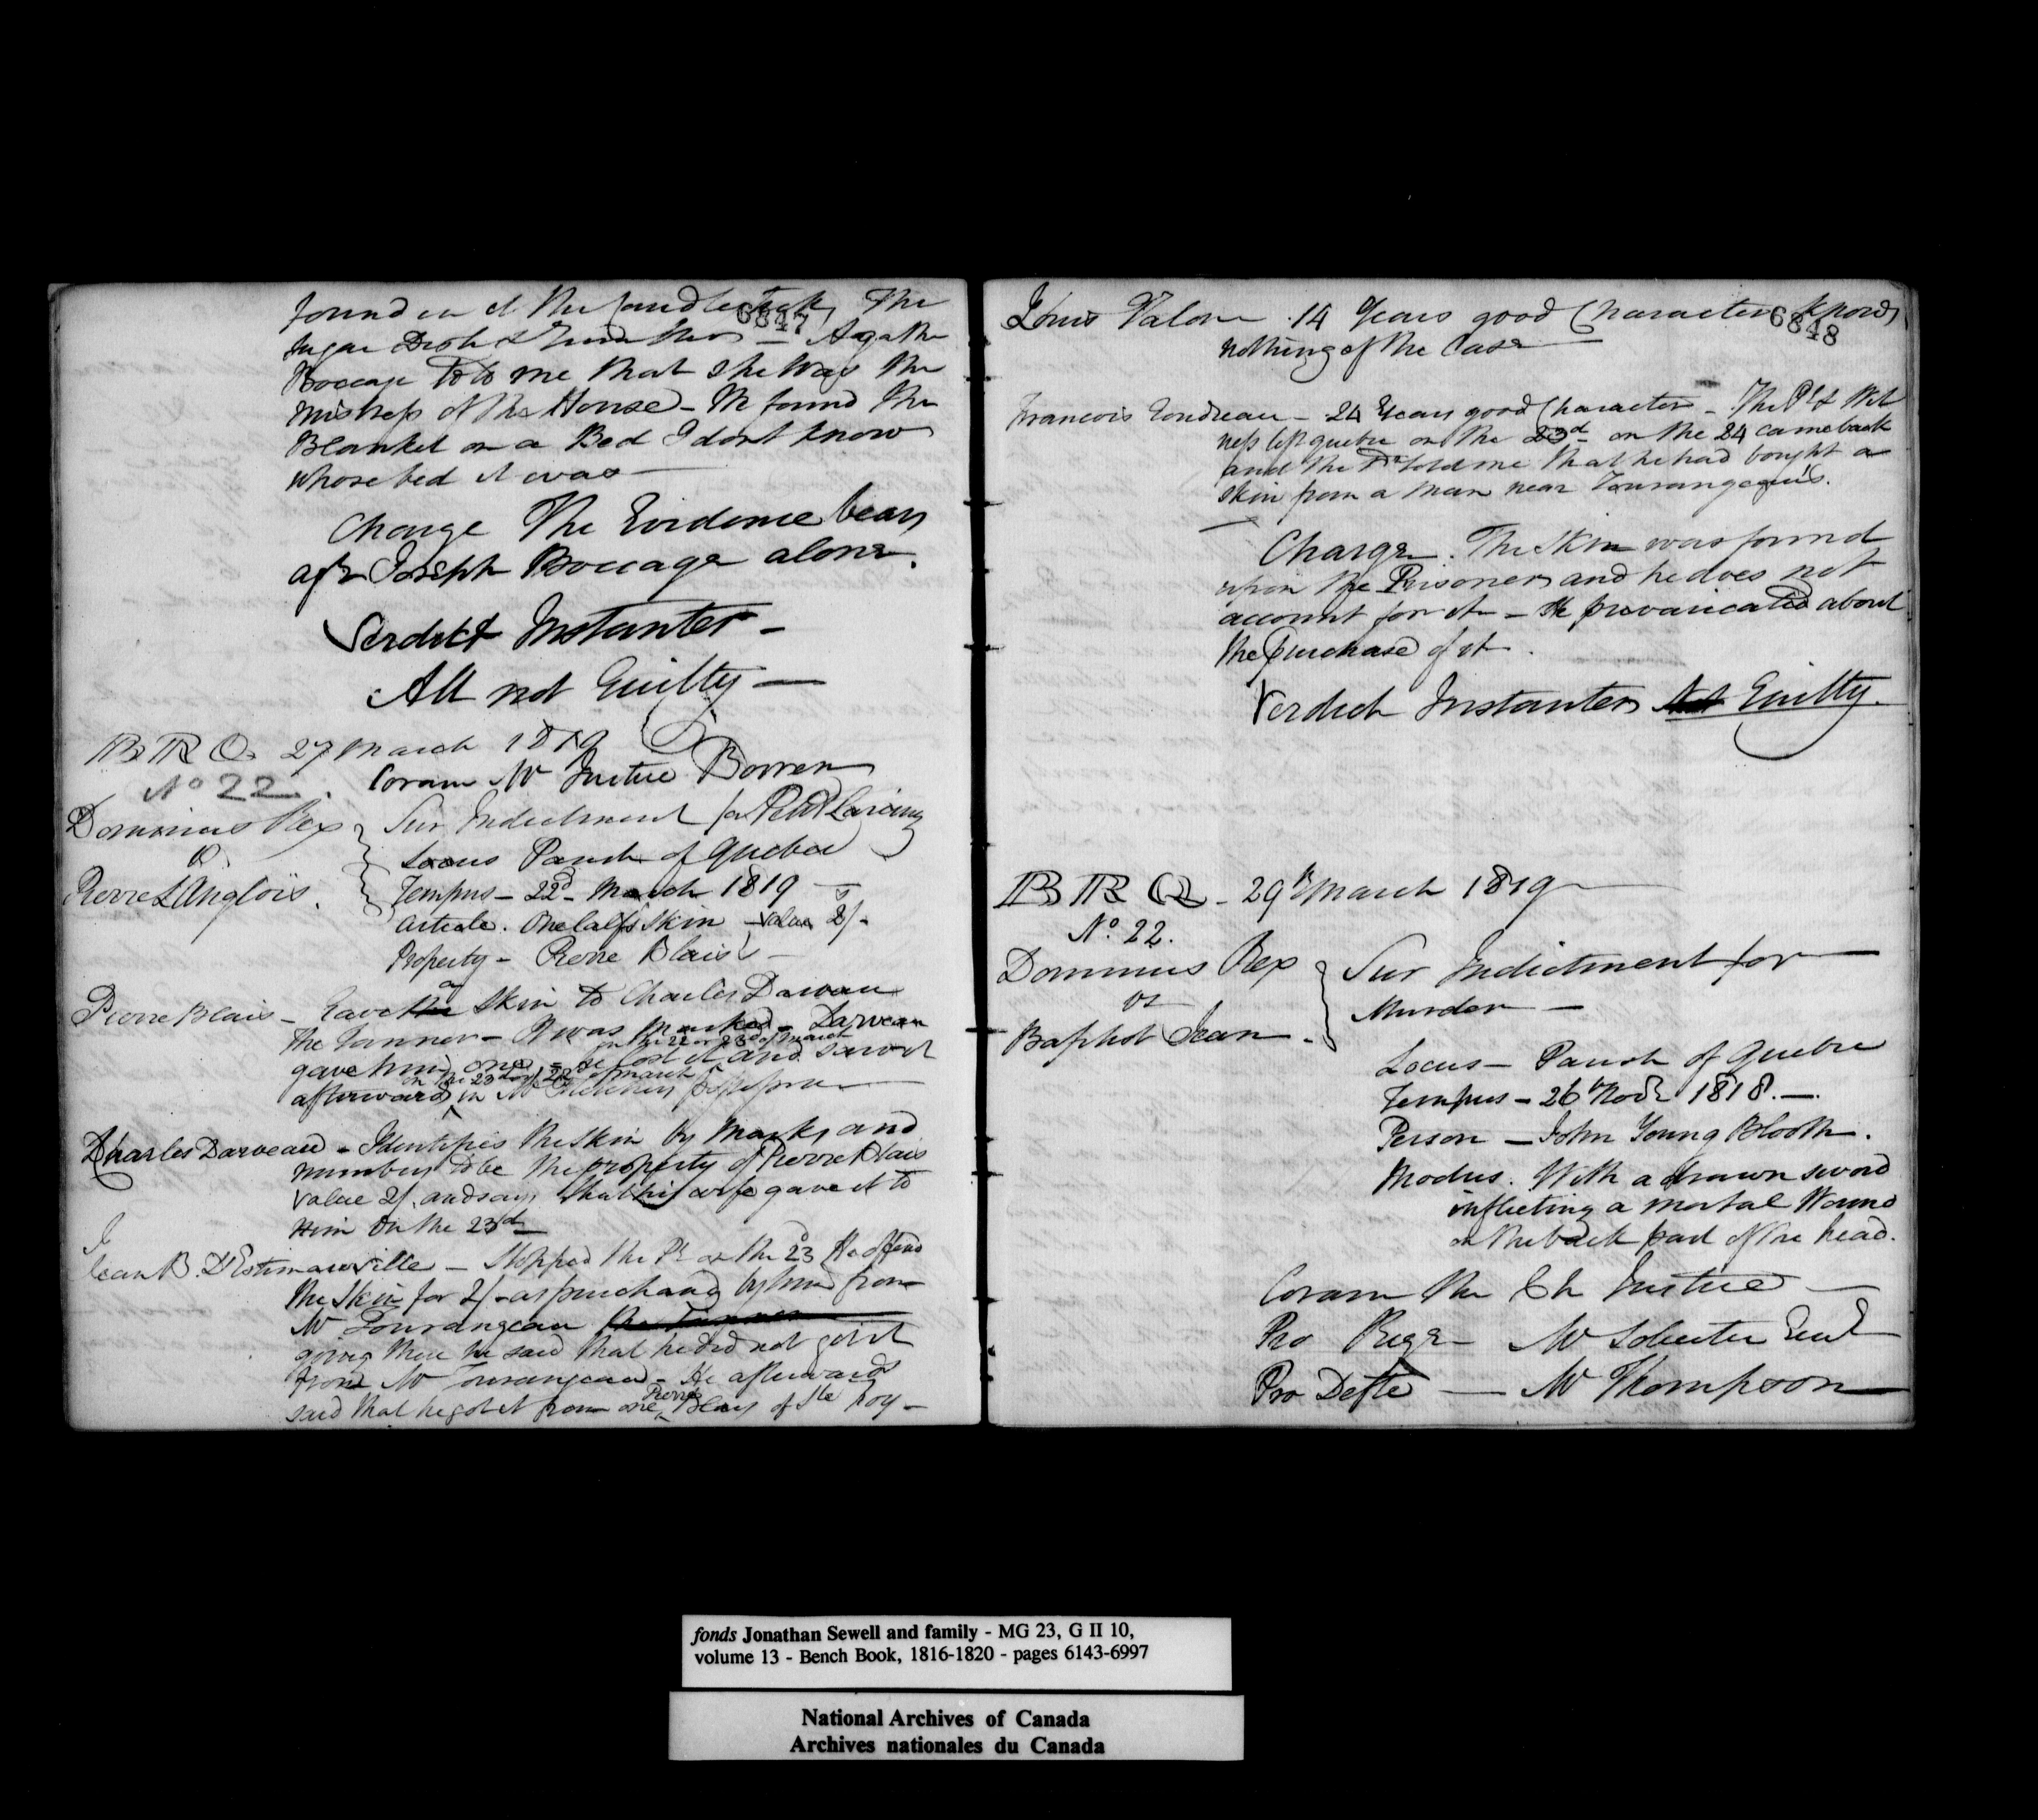 found in it the Candlestick, The
6847
Sugar Dish & Tea
Agathe
Boccage told me that she was the
mistress of the House - We found the
Blanket on a Bed I dont know
whose bed it was
Charge The Evidence bears
agst Joseph Boccage alone.
Verdict Instanter -
All not Guilty —
B R Q 27 March 1819
No 22. Coram Mr Justice Bowen
Dominus Rex
vs
Pierre L'Anglois.
Sur Indictment for Petit Larceny
Locus Parish of Quebec
Tempus - 22d March 1819 —
Article. One Calfs Skin - value 2/-
Property - Pierre Blais -
Pierre Blais - Gave the a Skin to Charles Darveau
the Tanner - It was marked - Darveau
on the 22 or 23d of March
gave him one - he lost it and saw it
on the 23d of March
afterwards in Mr possession
Charles Darveau - Identifies the skin by marks and
numbers to be the property of Pierre Blais
value 2/. and says that his wife gave it to
Him on the 23d
J
Jean B. D'Estimauville - Stopped the Pr on the 23d He offered
the skin for 2/- as purchased by him from
Mr Tourangeau the Tanner
going there he said that he did not get it
from Mr Tourangeau - He afterwards
said that he got it from one Pierre Blais of Ste Foy -
6848
Louis Valon 14 Years good Character Knows
nothing of the Case
Francois Gondreau - 24 Years good Character - The Pr & Wit
ness left Quebec on the 23d - on the 24 came back
and the Pr told me that he had bought a
skin from a man near Tourangeau's.
Charge. The Skin was found
upon the Prisoner and he does not
account for it - He prevaricated about
the purchase of it.
Verdict Instanter Not Guilty.
B R Q - 29th March 1819
No. 22.
Dominus Rex
vs
Baptist Jean.
Sur Indictment for
Murder -
Locus - Parish of Quebec
Tempus - 26th Novr 1818. -
Person - John Young Blooth.
Modus. With a drawn sword
inflicting a mortal Wound
on the back part of the head.
Coram the Ch Justice
Pro Rege - Mr Solicitor Genl
Pro Defte - Mr Thompson
fonds Jonathan Sewell and family - MG 23, G II 10,
volume 13 - Bench Book, 1816-1820 - pages 6143-6997
National Archives of Canada
Archives nationales du Canada